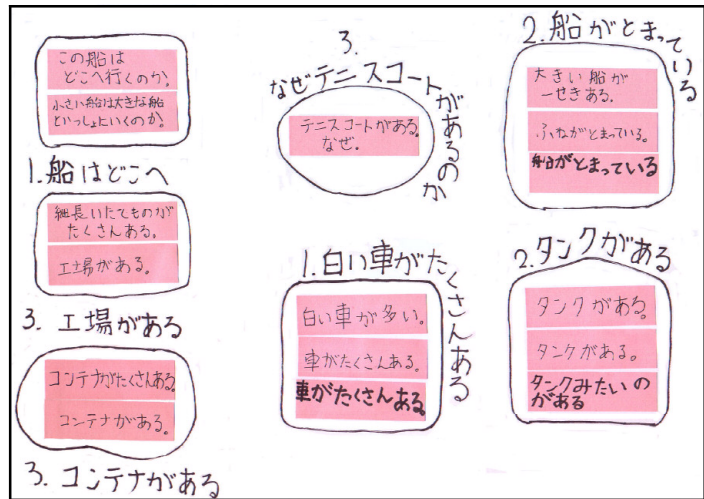 この船は
どこへ行くのか。
小さい船は大きな船
といっしょにいくのか。
1.船はどこへ
細長いたてものが
たくさんある。
工場がある。
3. 工場がある
コンテナがたくさんある。
コンテナがある。
3. コンテナがある
3.
なぜテニスコートがあるのか
テニスコートがある。
なぜ.
1.白い車がたくさんある
白い車が多い。
車がたくさんある。
車がたくさんある。
2.船がとまっている
大きい船が
一せきある.
ふねがとまっている。
船がとまっている
2.タンクがある
タンクがある。
タンクがある。
タンクみたいの
がある